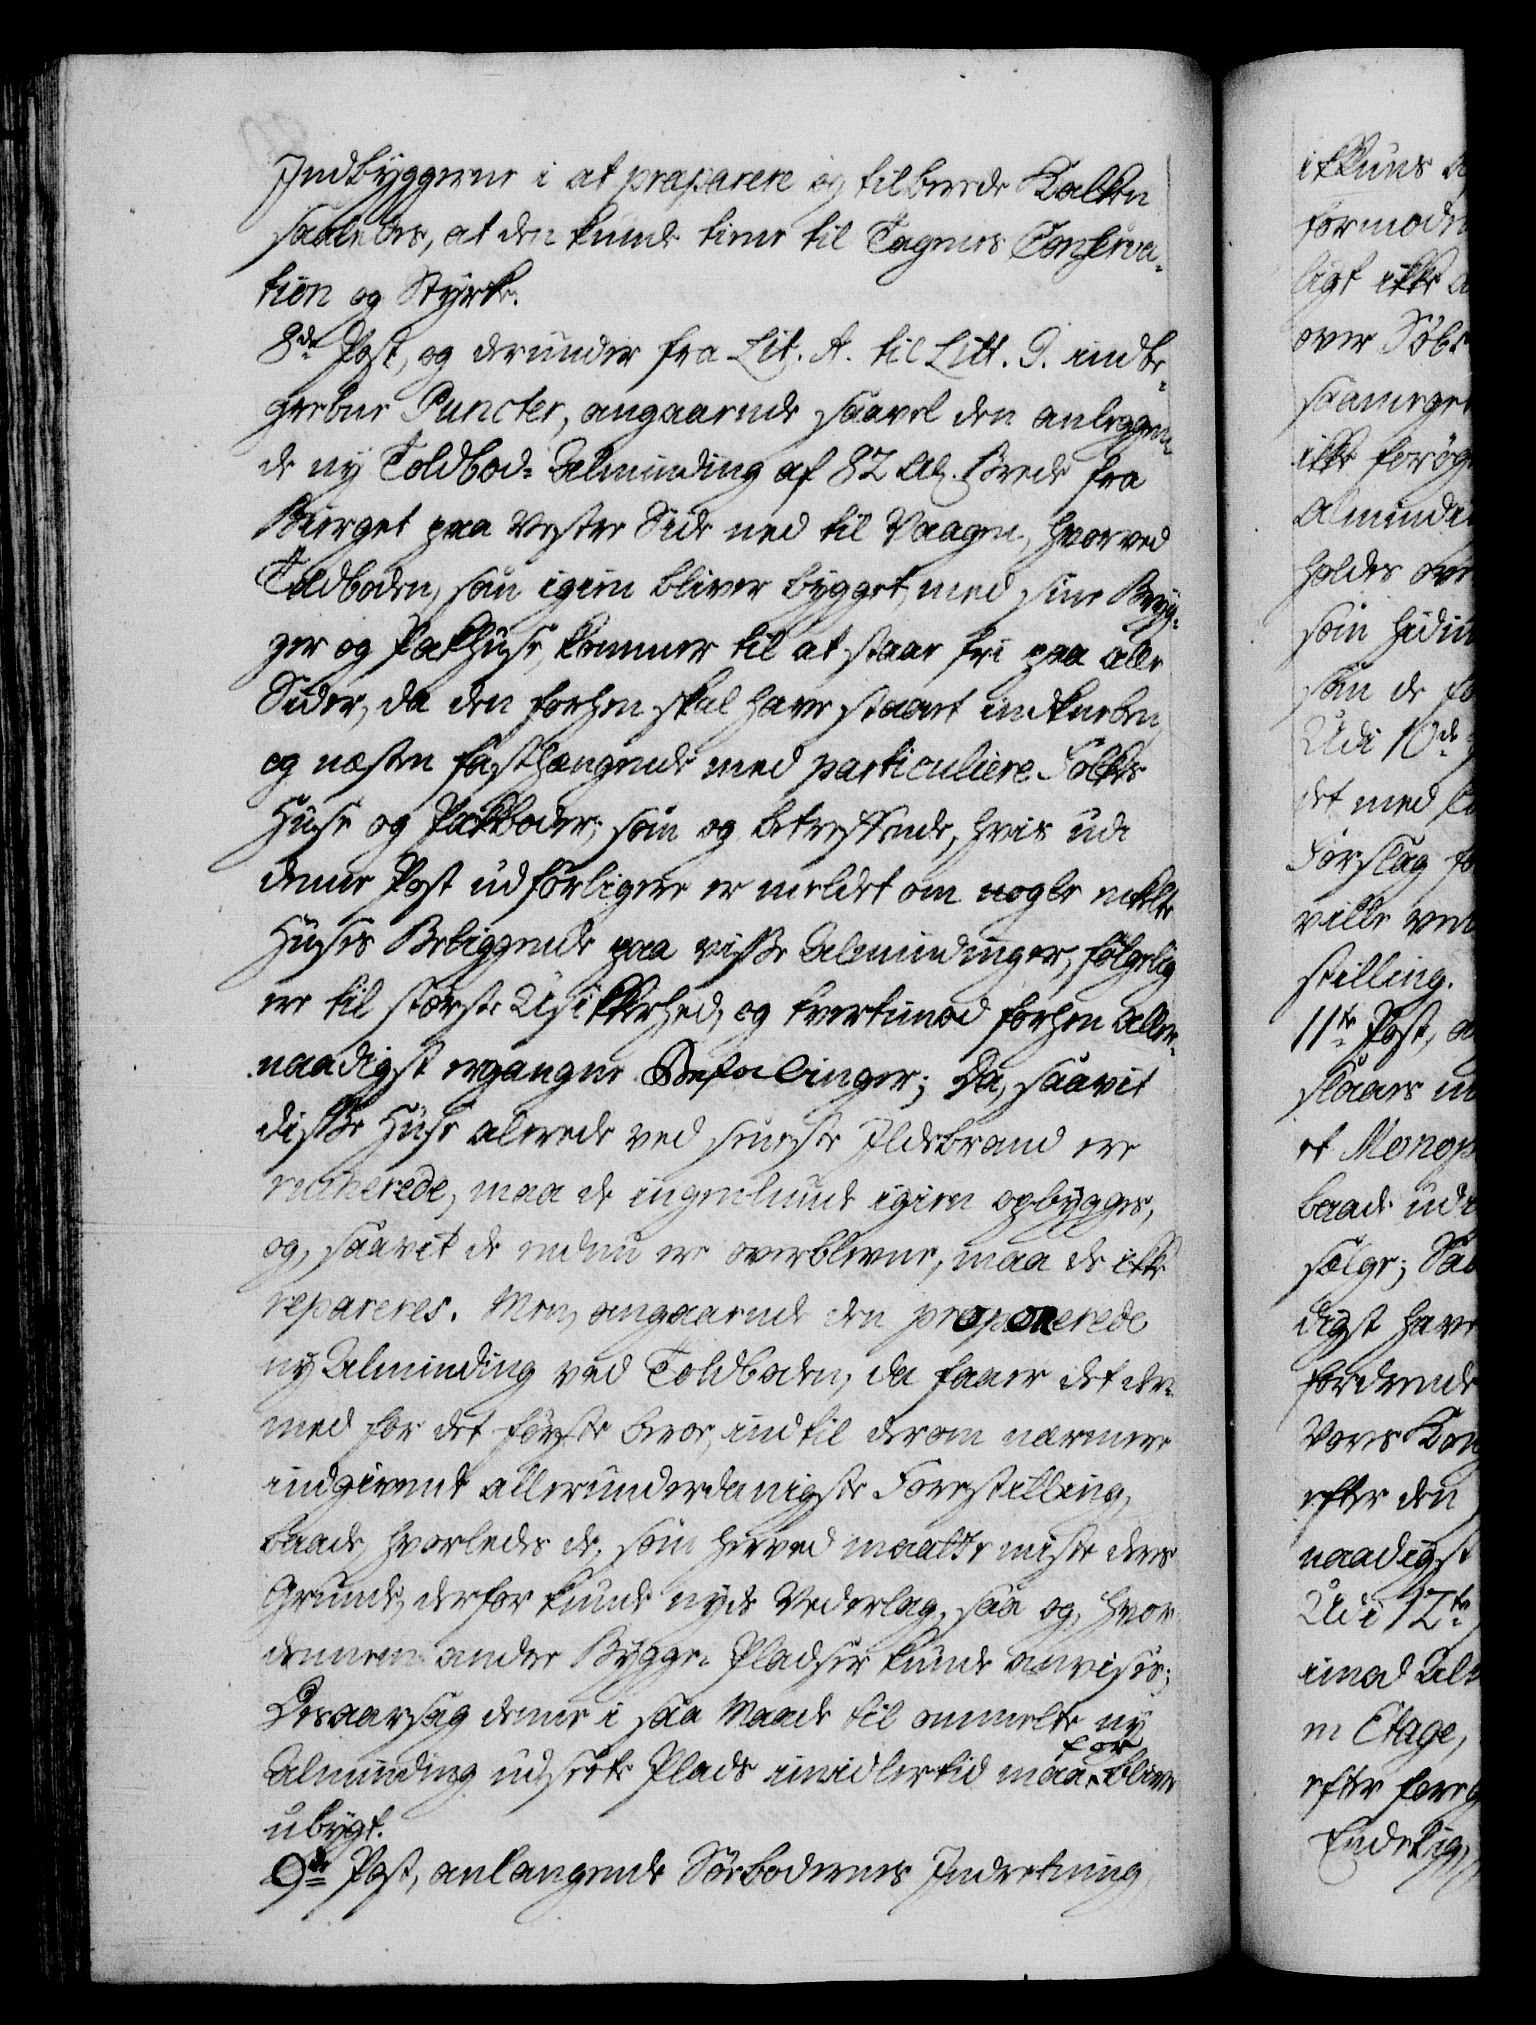 Indbyggerne i at præparere og tilberede Kalken
saaledes, at den kunde tiene til Tagenes Conserva-
tion og Styrke.
8de Post, og derunder fra Lit. A. til Litt. G. indbe-
grebne Puncter, angaaende saavel den anleggen-
de ny Toldbod-Alminding af 82 Al. Brede fra
Bierget paa Vestre Side ned til Vaagen, hvorved
Toldboden, som igien bliver bygget, med sine Bryg-
ger og Pakhuse, kommer til at staae fri paa alle
Sider, da den forhen skal have staaet indkneben,
og næsten fasthængende med particuliere Folks
Huse og Pakboder, som og betreffende, hvis udi
denne Post udførligere er meldet om nogle enkelte
Huses Beliggende paa visse Almindinger, følgelig
er til største Usikkerhed, og tvertimod forhen aller-
naadigst ergangne Befalinger; Da, saavit
disse Huse alerede ved seneste Ildebrand ere
ruinerede, maa de ingenlunde igien opbygges,
og, saavit de endnu ere overblevne, maa de ikke
repareres. Men, angaaende den proponerede
ny Alminding ved Toldboden, da faaer det der-
med for det første beroe, indtil derom nærmere
indgivende allerunderdanigste Forestilling,
baade, hvorledes de, som herved maatte miste deres
Grunde, derfor kunde nyde Vederlag, saa og, hvor
dennem andre Bygge-Pladser kunde anvises;
Desaarsag denne i saa Maade til ommelte ny
Alminding udseete Plads imidlertid maa for blive
ubygt.
9de Post, anlangende Søeboderners Indretning,
ikkuns
formode
ligt ikke
over Søbo
saameget
ikke forøg
Alminde
holdes over
som hidin
som de
Udi 10de
det med
Forslag
ville
stilling.
11te Post,
staaes
et Monop
baade udi
sælge; Saa
digst have
fordrende
Vores Kon
efter den
naadigst
Udi 12te
imod Al
en Etage,
efter foreg
Endelig,